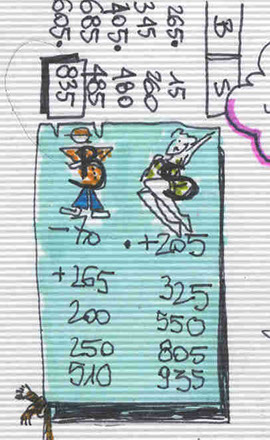 B S
265. 15
345 260
685 485
605. 835
B S
+205
+265 325
200 550
250 805
510 935